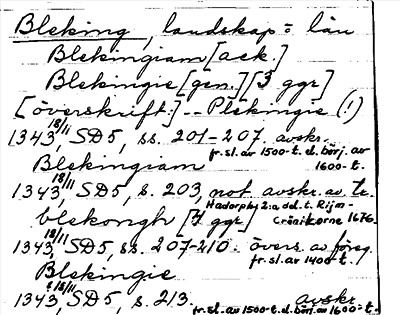 Bleking, landskap o län
Blekingiam [ack.]
Blekingie [gen.] [3 ggr]
[överskrift:] -- Plekingie (!)
1343 18/11, SD5, ss. 201-207. avskr.
fr. sl. av 1500-t. el. börj. av
Blekingiam 1600-t.
1343 18/11, SD5, s. 203, not. avskr. av tr.
Hadorphs 2:a del. t. Rijm-
blekongh [7 ggr] Crönikorne 1676.
1343 18/11, SD5, ss. 207-210. övers. av föreg.
fr. sl. av 1400-t.
Blekingie
1343 18/11, SD5, s. 213. avskr.
fr. sl. av 1500-t. el. börj. av 1600-t.